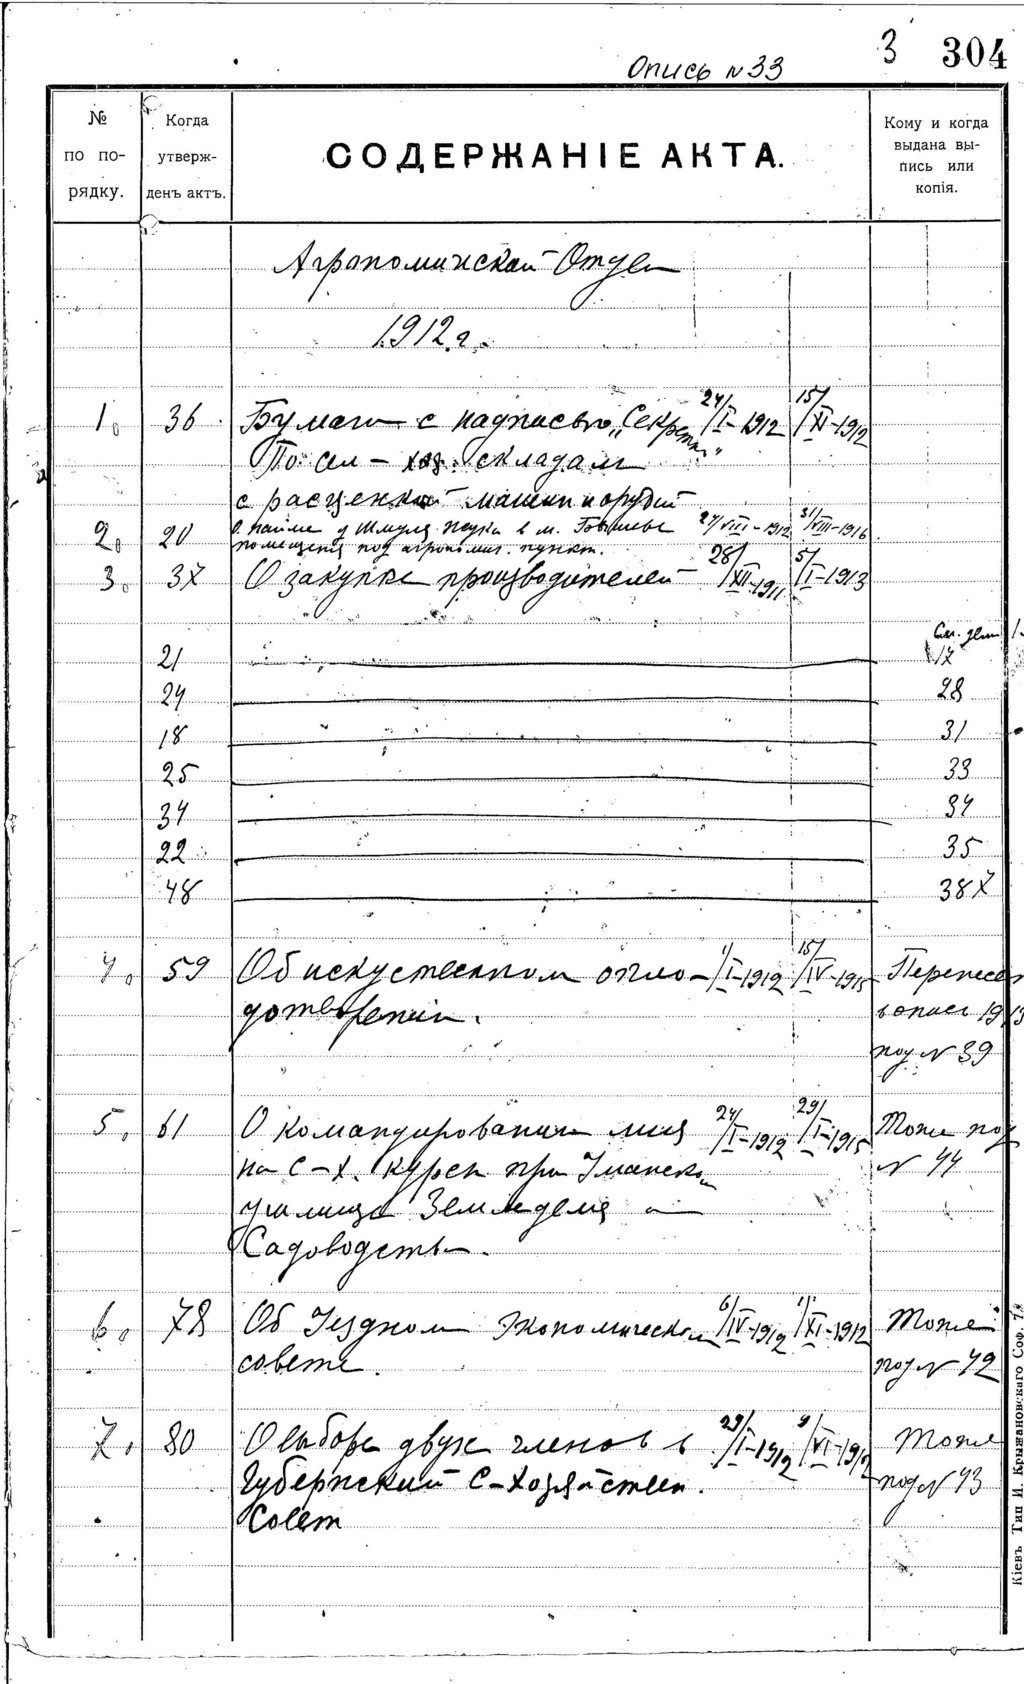 Опись №33 3 304
№ по по- рядку.
Когда утверж- денъ актъ.
СОДЕРЖАНІЕ АКТА.
Кому и когда выдана вы- пись или копія.
Агрономический Отдел
1912 г.
1. 36 Бумаги с надписью „Секретно" 24/I-1912 15/XI-1912
По сел-хоз. складам
с расценкой машин и орудий
2. 20 О найме у Шмуля в м. 27/VIII-1912 31/VIII-1916
помещения под агрономич. пункт.
3. 37 О закупке производителей 28/XII-1911 5/I-1913
См. дела
21 17
24 28
18 31
25 33
34 34
22 35
48 38
4. 59 Об искуственном опло- 1/I-1912 15/IV-1915 Перенесен
дотворении. в опись 1913
под № 39
5. 61 О командировании лиц 24/I-1912 29/I-1915 Тоже под
на С-Х. курсы при Уманском № 44
училище Земледелия и
Садоводства.
6. 78 Об Уездном Экономическом 6/IV-1912 1/XI-1912 Тоже
совете. под № 42
7. 80 О выборе двух членов в 29/I-1912 9/VI-1912 Тоже
Губернский С-Хозяйствен. под № 43
Совет
Кіевъ Тип И. Крыжановскаго Соф.